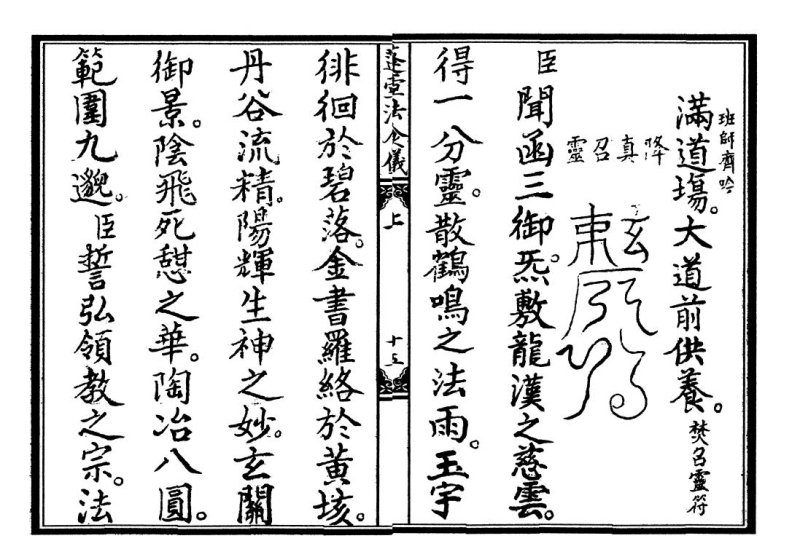 班師齊吟
滿道場。大道前供養。焚召靈符
降真召靈
臣聞函三御炁。敷龍漢之慈雲。
得一分靈。散鶴鳴之法雨。玉宇
蓬壺法食儀 上 十五
徘徊於碧落。金書羅絡於黃垓。
丹谷流精。陽輝生神之妙。玄關
御景。陰飛死憇之華。陶冶八圓。
範圍九邈。臣誓弘領教之宗。法